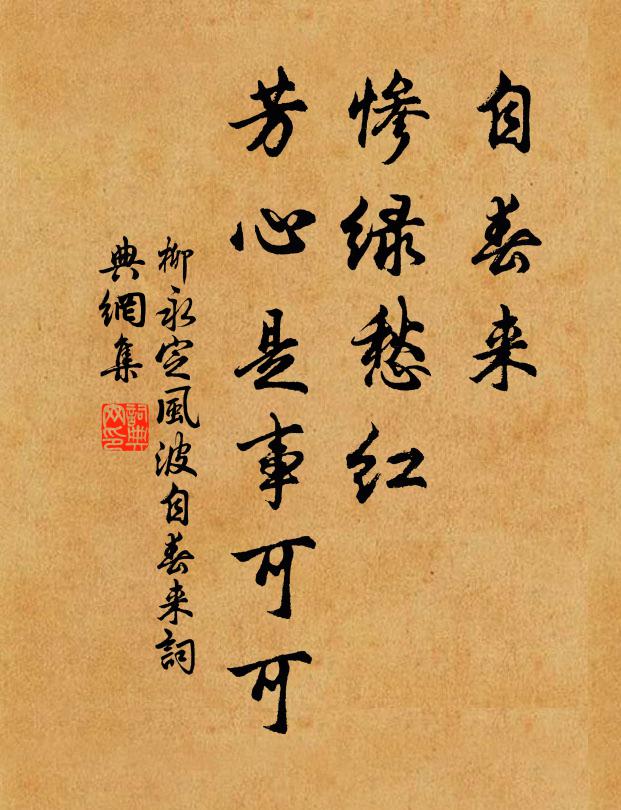 自春来
惨绿愁红
芳心是事可可
柳永定风波自春来詞
典網集
詞典网印